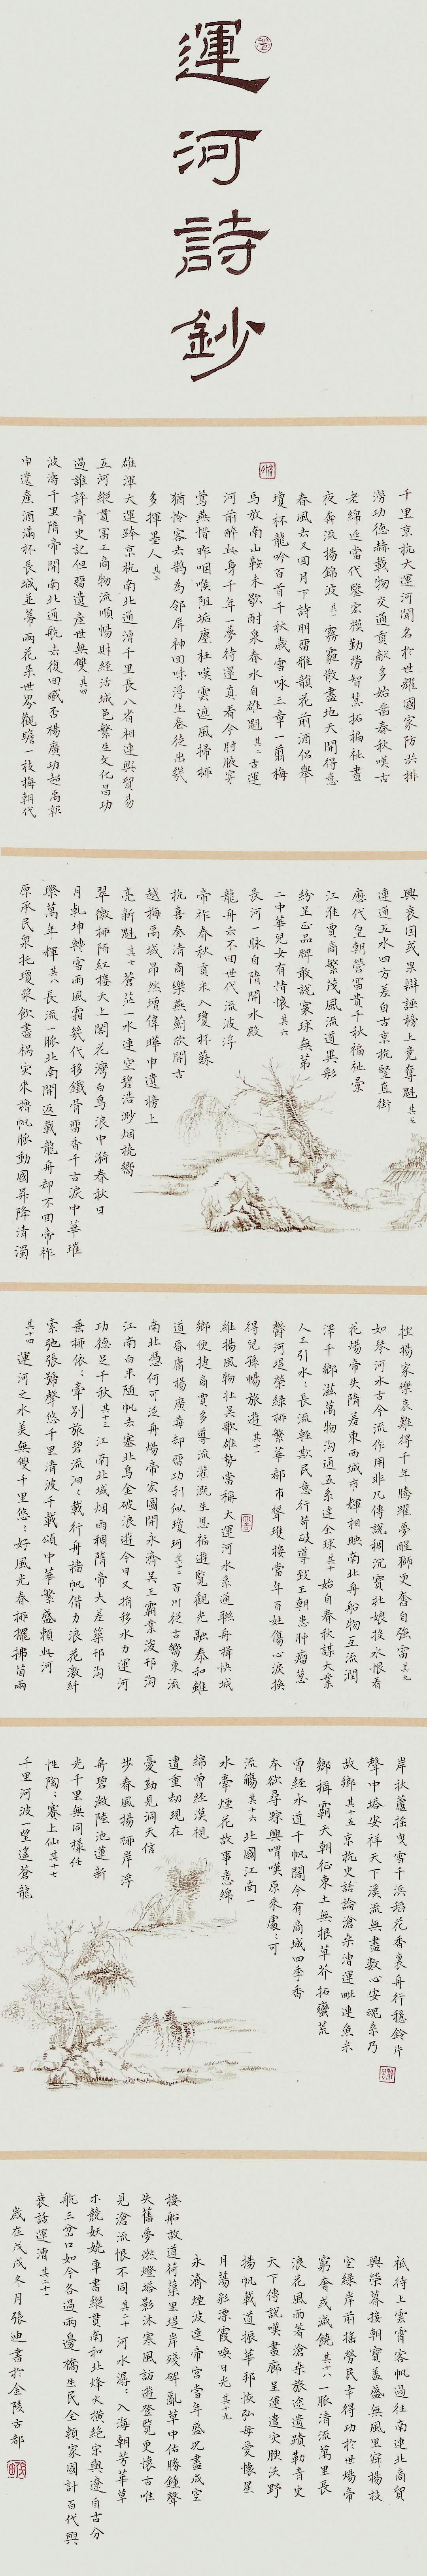 運河詩鈔
千里京杭大運河聞名於世耀國家防洪排
澇功德赫載物交通貢獻多始啻春秋嘆古
老綿延當代鑒宏模勤勞智慧拓福祉晝
夜奔流揚錦波其一霧靄散盡地天開得意
春風去又回月下詩朋留雅韻花前酒侶舉
瓊杯龍吟百首千秋歲雪咏三章一翦梅
馬放南山鞍未歇酎泉春水自雄魁其二古運
河前醉此身千年一夢待還真看今肘腋穿
鶯燕惜昨咽喉阻垢塵枉嘆雲遮風掃柳
猶怜客去鵲為鄰屏神回味浮生卷徒出幾
多揮墨人其三
雄渾大運跨京杭南北通漕千里長八省相連興貿易
五河縱貫富工商物流順暢財經活城邑繁生文化昌功
過誰評青史記但留遺產世無雙其四
波濤千里隋帝開南北通航去復回臧否楊廣功超禹
申遺産酒滿杯長城並蒂兩花呈世界觀瞻一枝梅朝代
興衰因或果辯誣榜上竟奪魁其五
連通五水四方差自古京杭竪直街
歷代皇朝營富貴千秋福祉彙
江淮賈商繁茂風流道異彩
紛呈正品牌敢說寰球無第
二中華兒女有情懷其六
長河一脈自隋開水殿
龍舟去不回世代流波浮
帝祚春秋貢米入瓊杯蘇
杭喜奏清商樂燕薊欣開古
越梅禹城昂然增偉曄申遺榜上
亮新魁其七蒼茫一水連空碧浩渺烟橈嚮
翠微柳陌紅樓天上闕花灣白鳥浪中漪春秋日
月乾坤轉雪雨風霜幾代移鐵骨留香千古淚中華璀
璨萬年輝其八長流一脈北南開返載龍舟却不回帝祚
原承民泉托瓊漿飲盡禍灾來檣帆脈動國昇降清濁
挂揚家樂哀難得千年騰躍夢醒獅更奮自強富其九
如琴河水古今流作用非凡傳說稠沉寶杜娘投水恨看
花煬帝失隋羞東西城市輝相映南北舟船物互流潤
澤千鄉滋萬物沟通五系達全球其十始自春秋謀大業
人工引水長流輕欺民意行苛政導致王朝患肿瘤葱
鬱河堤榮綠柳繁華都市聳瓊樓當年百姓傷心淚換
得兒孫暢旅遊其十一
維揚風物壯吳歌雄勢當稱大運河水系通聯舟揖快城
鄉便捷商賈多導流灌溉生恩福遊覽觀光融泰和雖
道昏庸楊廣毒却留功利似瓊珂其十二百川從古嚮東流
南北憑何可泛舟煬帝宏圖開永濟吳王霸業浚邗沟
江南白米随帆去塞北烏金破浪遊今日又捐移水力運河
功德足千秋其十三江南北城烟雨稠隋帝夫差築邗沟
垂柳依牽別旅碧流洄載行舟檣帆借力浪花激纤
索弛張號聲悠千里清波千載頌中華繁盛賴此河
其十四 運河之水美無雙千里悠好風光春柳擺拂苗兩
岸秋蘆搖曳雪千浜稻花香裏舟行穩鈴片
聲中塔安祥天下溪流無盡數心安魂系乃
故鄉其十五京杭史話論滄桑漕運毗連魚米
鄉稱霸天朝征東土無根草芥拓蠻荒
曾經水道千帆闊今有商城四季香
本欲尋踪興嘆原來處可
流觴其十六北國江南一
水牽煙花故事意綿
綿曾經漠視
遭重劫現在
憂勤見洞天信
步春風揚柳岸浮
舟碧澈陸池蓮新
光千里無同樣任
性陶賽上仙其十七
千里河波一望遙蒼龍
祇待上雲霄客帆過往南連北商貿
興榮暮接朝寶盖盛無風里寐楊枝
空綠岸前搖勞民幸得功於世煬帝
窮奢或減饒其十八一脈清流萬里長
浪花風雨著滄桑旅途遺蹟勒青史
天下傳說嘆畫廊呈運遭灾腴沃野
揚帆載道振華邦恢弘母愛懷星
月蕩彩漂霞喚日光其十九
永濟煙波連帝宮當年盛況盡成空
接船故道荷葉里堤岸殘碑亂草中佑勝鍾聲
失舊夢燃燈塔影沐寒風訪遊登覽更懷古唯
見滄流恨不同其二十河水潺入海朝芳華草
木競妖嬈車書縱貫南和北烽火橫絕宋與遼自古分
航三岔口如今各過兩邊橋生民全賴家國計百代興
衰話運漕其二十一
歲在戊戌冬月張迪書於金陵古都